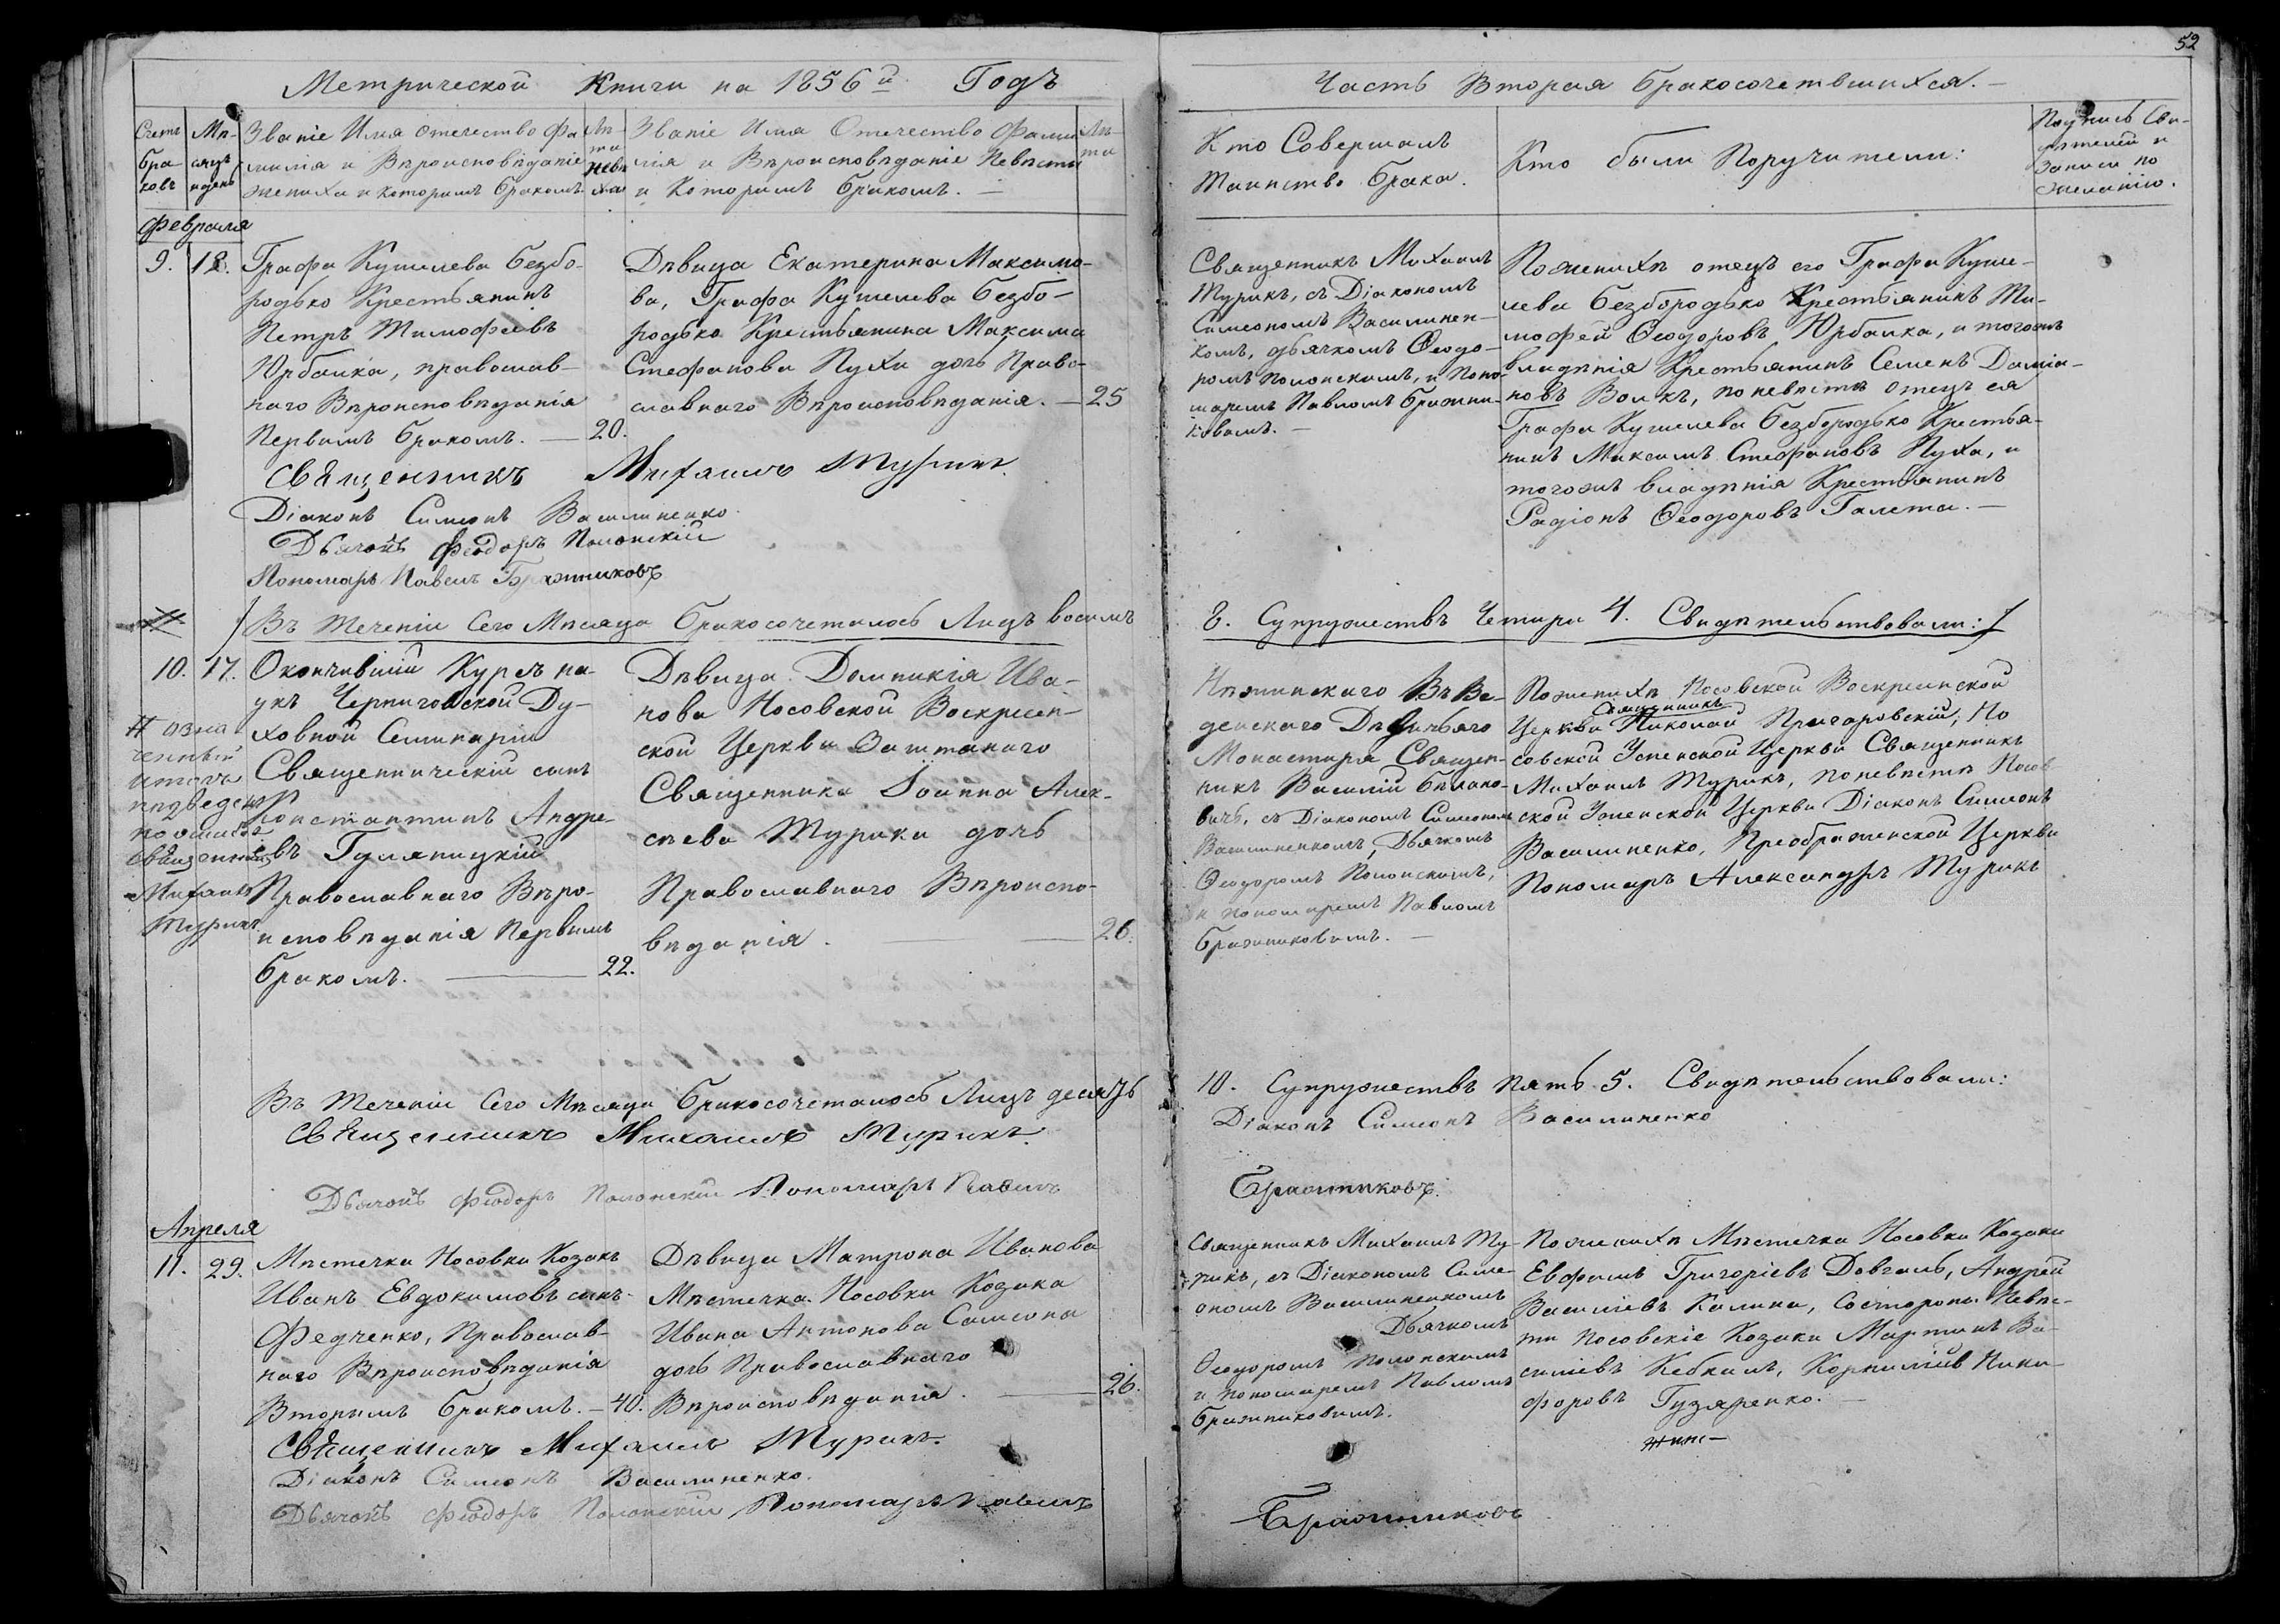 52
Метрической Книги на 1856й Годъ
Часть Вторая бракосочетавшихся.
Счетъ браковъ
Мѣсяцъ и день
Званіе Имя Отечество Фа
милія и Вѣроисповѣданіе
жениха и которымъ бракомъ.
Лѣта жениха
Званіе Имя Отечество Фами
лія и Вѣроисповѣданіе Невѣсты
и Которымъ бракомъ. —
Лѣта
Кто Совершалъ
Таинство брака.
Кто были Поручители:
Подпись Сви-
дѣтелей и
Записи по
желанію.
Февраля
9. 18.
Графа Кушелева безбо-
родько Крестьянинъ
Петръ Тимофеевъ
Юрбалка, православ-
наго Вѣроисповѣданія
Первымъ бракомъ. — 20.
Дѣвица Екатерина Максимо-
ва, Графа Кушелева безбо-
родька Крестьянина Максима
Стефанова Пуха дочь Право-
славнаго Вѣроисповѣданія. — 25
Священникъ Михаилъ
Турикъ, съ Діакономъ
Симеономъ Василинен-
комъ, дьячкомъ Ѳеодо-
ромъ Полонскимъ, и Поно-
маремъ Павломъ бражни-
ковымъ. —
Поженихѣ отецъ его Графа Куше-
лева безбородько Крестьянинъ Ти-
мофей Ѳеодоровъ Юрбалка, и тогожъ
владѣнія Крестьянинъ Семенъ Даміа-
новъ Волкъ, поневѣстѣ отецъ ея
Графа Кушелева безбородько Крестья-
нинъ Максимъ Стефановъ Пуха, и
тогожъ владѣнія Крестьянинъ
Радіонъ Ѳеодоровъ Галета. —
Священникъ Михаилъ Турикъ.
Діаконъ Симеонъ Василиненко.
Дьячокъ Феодоръ Полонскій
Пономарь Павелъ Бражниковъ
Въ теченіи Сего Мѣсяца бракосочеталось Лицъ восимъ
8. Супружествъ Четыри 4. Свидѣтельствовали:
10. 17.
Окончившій Курсъ на-
укъ Черниговской Ду-
ховной Семинаріи
Священническій сынъ
Константинъ Андре-
евъ Гуляницкій
Православнаго Вѣро-
исповѣданія Первымъ
бракомъ. — 22.
# означенный
итогъ
подведенъ
по ошибкѣ
Священникъ
Михаилъ
Турикъ
Дѣвица Домникія Ива-
нова Носовской Воскресен-
ской Церкви Заштатнаго
Священника Іоанна Алек-
сѣева Турика дочь
Православнаго Вѣроиспо-
вѣданія. — 26.
Нѣжинскаго ВъВе-
денскаго Дѣвичьяго
Монастиря Священ-
никъ Василій Билано-
вичъ, съ Діакономъ Симеономъ
Василиненкомъ, Дьячкомъ
Ѳеодоромъ Полонскимъ,
и пономаремъ Павломъ
бражниковымъ. —
Поженихѣ Носовской Воскресенской
Церкви Священникъ Николай Пригаровскій, Но
совской Успенской Церкви Священникъ
Михаилъ Турикъ, поневѣстѣ Носов
ской Успенской Церкви Діаконъ Симеонъ
Василиненко, Преображенской Церкви
Пономарь Александръ Турикъ
Въ теченіи Сего Мѣсяца бракосочеталось Лицъ десять
10. Супружествъ пять 5. Свидѣтельствовали:
Священникъ Михаилъ Турикъ.
Діаконъ Симеонъ Василиненко
Дьячокъ Феодоръ Полонскій Пономарь Павелъ
Бражниковъ.
Апреля
11. 29.
Мѣстечка Носовки Козакъ
Иванъ Евдокимовъ сынъ
Федченко, Православ-
наго Вѣроисповѣданія
Вторымъ бракомъ. — 40.
Дѣвица Матрона Иванова
Мѣстечка Носовки Козака
Ивана Антонова Самсона
дочь Православнаго
Вѣроисповѣданія. — 26.
Священникъ Михаилъ Ту-
рикъ, съ Діакономъ Симе-
ономъ Василиненкомъ
Дьячкомъ
Ѳеодоромъ Полонскимъ
и пономаремъ Павломъ
бражниковымъ.
Поженихѣ Мѣстечка Носовки Козаки
Евфимъ Григоріевъ Довгаль, Андрей
Василіевъ Калина, Состороны Невѣс-
ти Носовскіе Козаки Мартинъ Ва-
силіевъ Кебкалъ, Корнилій Ники-
форовъ Гузяренко. —
Священникъ Михаилъ Турикъ.
Діаконъ Симеонъ Василиненко.
Дьячокъ Феодоръ Полонскій Пономарь Павелъ
Бражниковъ